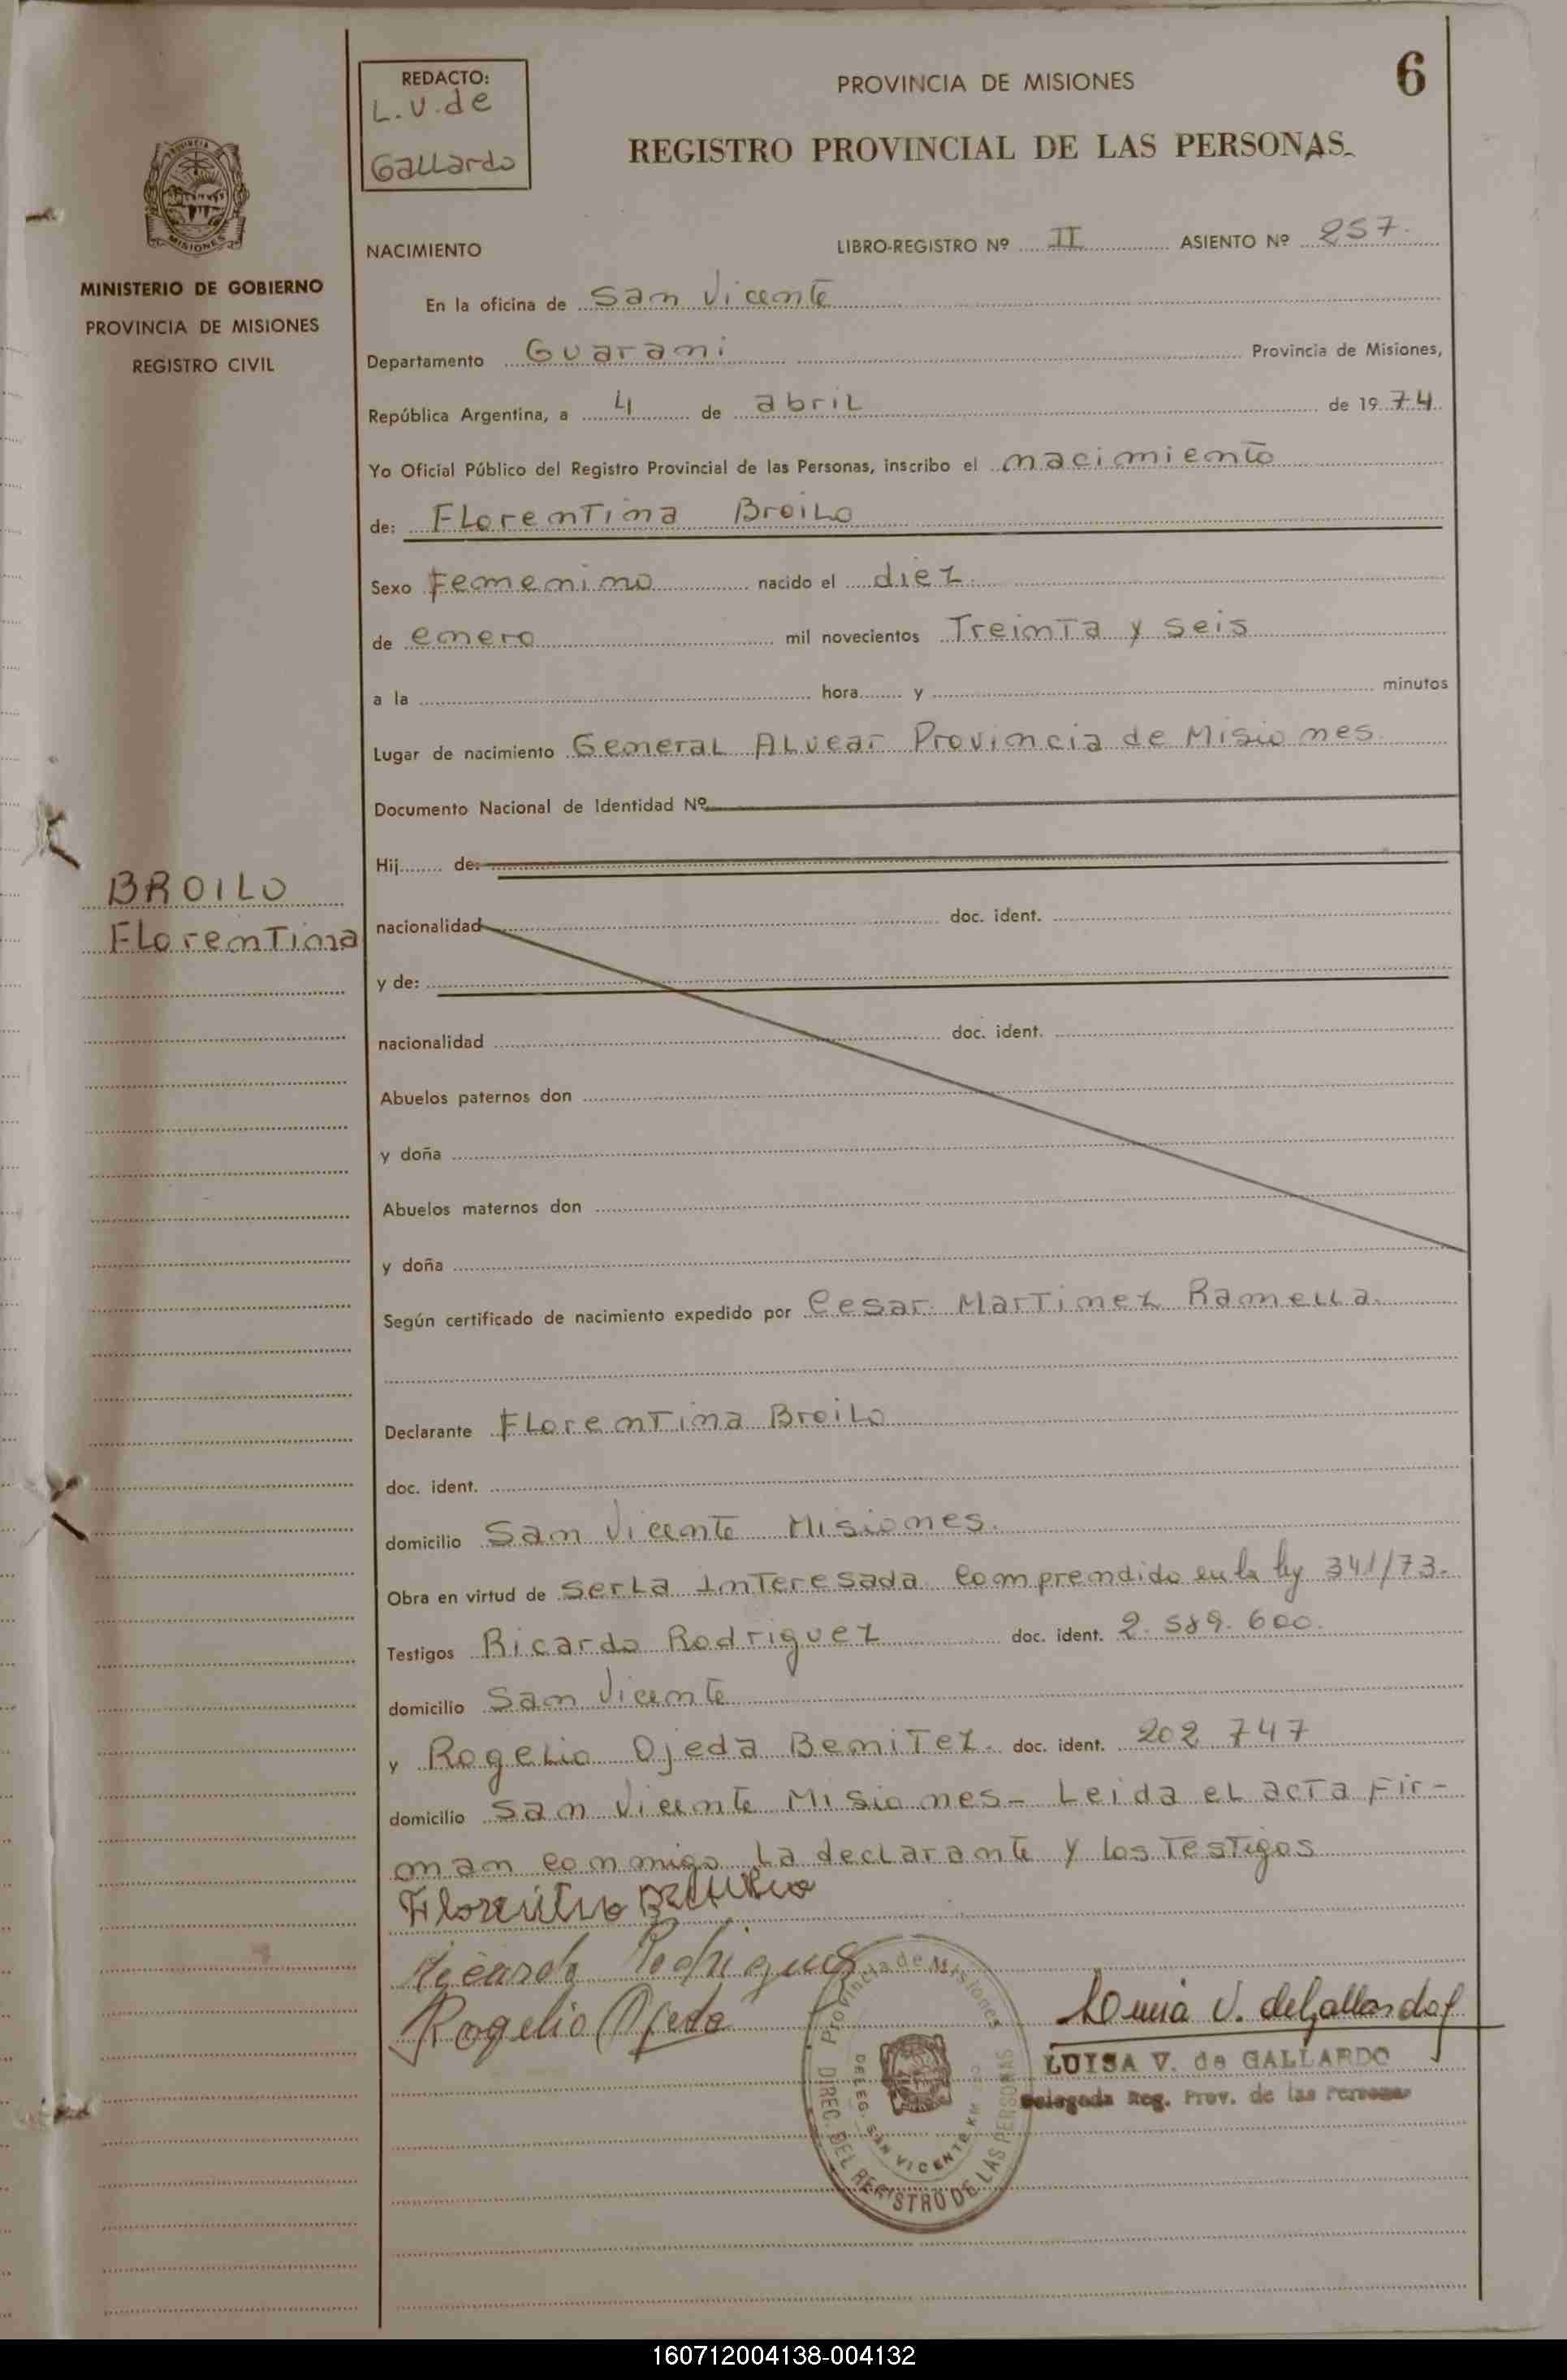 REDACTO:
L.V. de
Gallardo
PROVINCIA DE MISIONES
6
REGISTRO PROVINCIAL DE LAS PERSONAS
PROVINCIA DE
MISIONES
MINISTERIO DE GOBIERNO
PROVINCIA DE MISIONES
REGISTRO CIVIL
NACIMIENTO LIBRO-REGISTRO Nº II ASIENTO Nº 257.
En la oficina de San Vicente
Departamento Guarani Provincia de Misiones,
República Argentina, a 4 de abril de 1974.
Yo Oficial Público del Registro Provincial de las Personas, inscribo el nacimiento
de: Florentina Broilo
Sexo Femenino nacido el diez
de enero mil novecientos Treinta y seis
a la hora y minutos
Lugar de nacimiento General Alvear Provincia de Misiones
Documento Nacional de Identidad Nº
Hij de:
BROILO
Florentina
nacionalidad doc. ident.
y de:
nacionalidad doc. ident.
Abuelos paternos don
y doña
Abuelos maternos don
y doña
Según certificado de nacimiento expedido por Cesar Martinez Ramella.
Declarante Florentina Broilo
doc. ident.
domicilio San Vicente Misiones.
Obra en virtud de ser la Interesada Comprendido en la ley 341/73.
Testigos Ricardo Rodriguez doc. ident. 2.589.600.
domicilio San Vicente
y Rogelio Ojeda Benitez. doc. ident. 202 747
domicilio San Vicente Misiones- Leida el acta Fir-
man conmigo La declarante y los Testigos
Ricardo Rodriguez
Rogelio Ojeda
Luisa V. de Gallardo
LUISA V. de GALLARDO
Delegada Reg. Prov. de las Personas
Provincia de Misiones
DIREC. DEL REGISTRO DE LAS PERSONAS
DELEG. SAN VICENTE KM
160712004138-004132